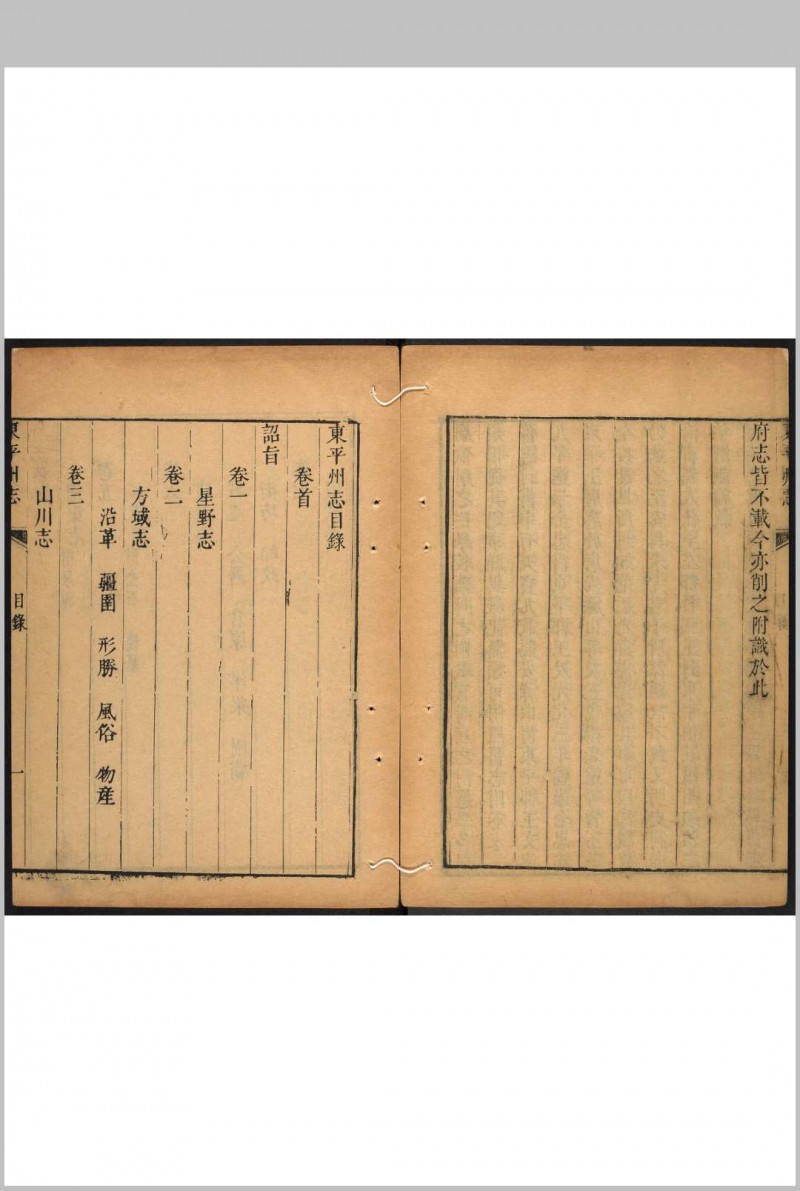 府志皆不載今亦削之附識於此
東平州志目錄
卷首
詔旨
卷一
星野志
卷二
方域志
沿革 疆圉 形勝 風俗 物產
卷三
山川志
東平州志 目錄 一